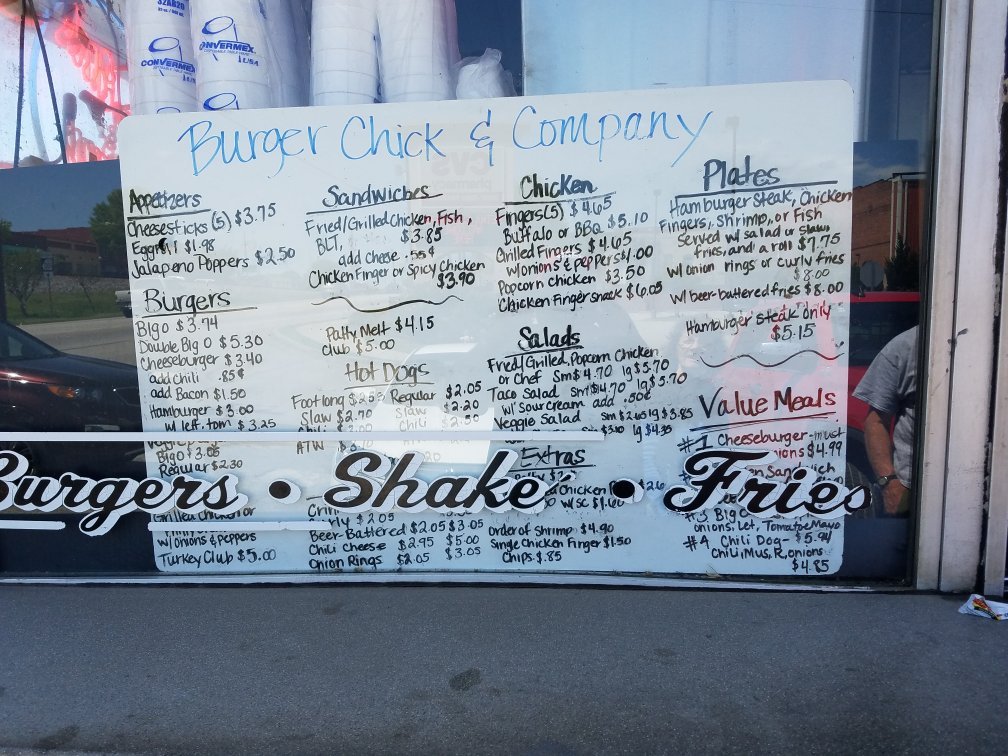 32AB20
CONVERMEX
CONVERMEX
USA
Burger Chick & Company
Appetizers
Cheesesticks (5) $3.75
$1.98
Jalapeno Poppers $2.50
Burgers
Big O $3.74
Double Big O $5.30
Cheeseburger $3.40
add chili .85¢
add Bacon $1.50
Hamburger $3.00
w/ lett. tom $3.25
Big O $3.05
Regular $2.30
Grilled Chicken or
w/onions & peppers
Turkey Club $5.00
Sandwiches
Fried/Grilled Chicken, Fish,
BLT, $3.85
add cheese .55¢
Chicken Finger or Spicy Chicken
$3.90
Patty Melt $4.15
Club $5.00
Hot Dogs
Footlong Regular $2.05
Slaw $2.70 Slaw $2.20
Chili
ATW
$2.05
Beer-Battered $2.05 $3.05
Chili Cheese $2.95 $5.00
Onion Rings $2.05 $3.05
Chicken
Fingers (5) $4.65
Buffalo or BBQ $5.10
Grilled Fingers $4.05
w/onions & peppers $1.00
Popcorn chicken $3.50
Chicken Finger snack $6.05
Salads
Fried/Grilled, Popcorn Chicken
or Chef Sm $4.70 lg $5.70
Taco Salad Sm $4.70 lg $5.70
w/ Sour Cream add .50¢
Veggie Salad Sm $2.65 lg $3.85
lg $4.35
Extras
Chicken
w/SC
order of Shrimp $4.90
Single Chicken Finger $1.50
Chips $.85
Plates
Hamburger Steak, Chicken
Fingers, Shrimp, or Fish
Served w/ salad or slaw
fries, and a roll $7.75
w/ onion rings or curly fries
$8.00
w/ beer-battered fries $8.00
Hamburger steak only
$5.15
Value Meals
#1 Cheeseburger-must
$4.99
onions, Let, Tomatoe Mayo
$5.94
#4 Chili Dog-
Chili, Mus, R, onions
$4.85
Burgers • Shake • Fries